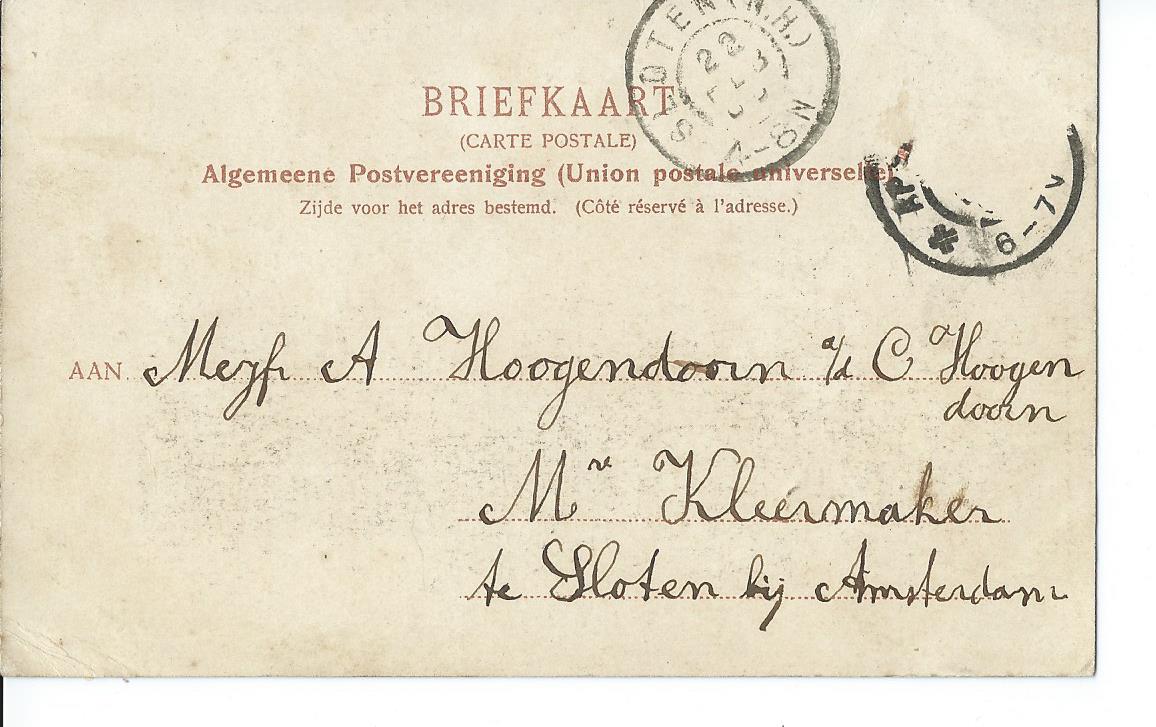 SLOTEN (N.H.)
22
BRIEFKAART
(CARTE POSTALE)
Algemeene Postvereeniging (Union postale universelle)
Zijde voor het adres bestemd. (Côté réservé à l'adresse.)
6-7V
AAN Mejfr A Hoogendoorn a/d C Hoogen
doorn
Mr Kleermaker
te Sloten bij Amsterdam